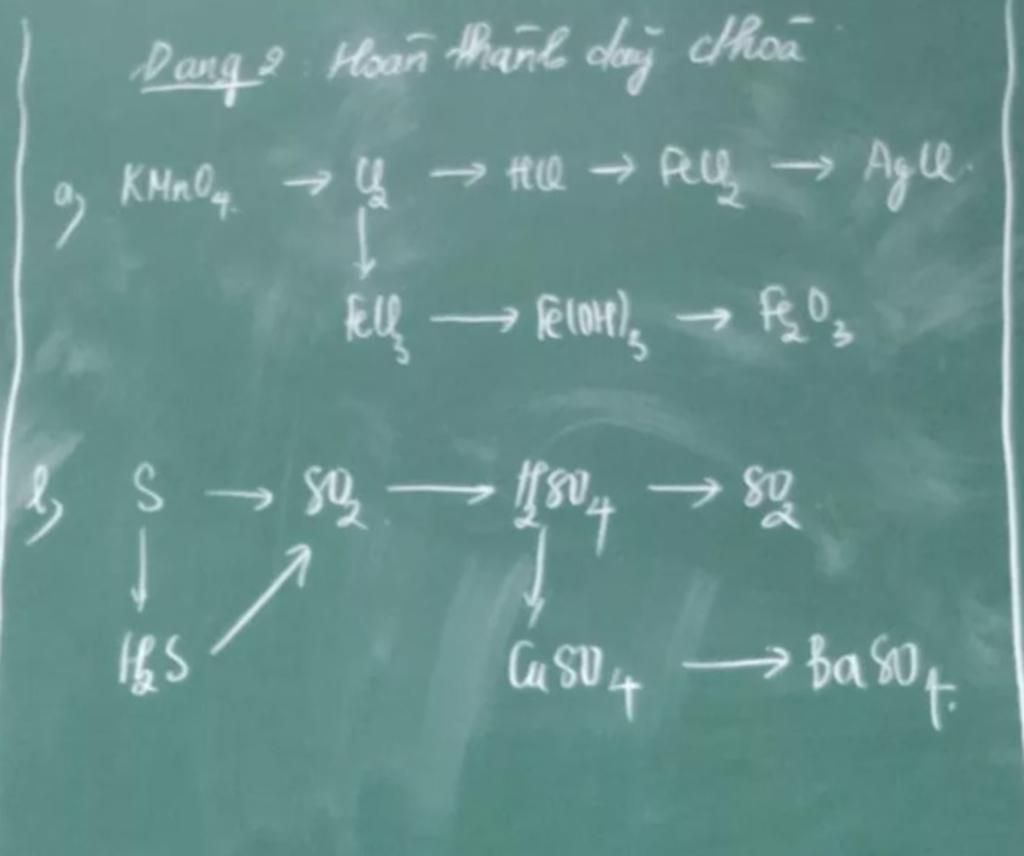 Dạng 2: Hoàn thành dãy chhoá
a, KMnO₄ → Cl₂ → HCl → FeCl₂ → AgCl.
↓
FeCl₃ → Fe(OH)₃ → Fe₂O₃
b, S → SO₂ → H₂SO₄ → SO₂
↓ ↗ ↓
H₂S CuSO₄ → BaSO₄.